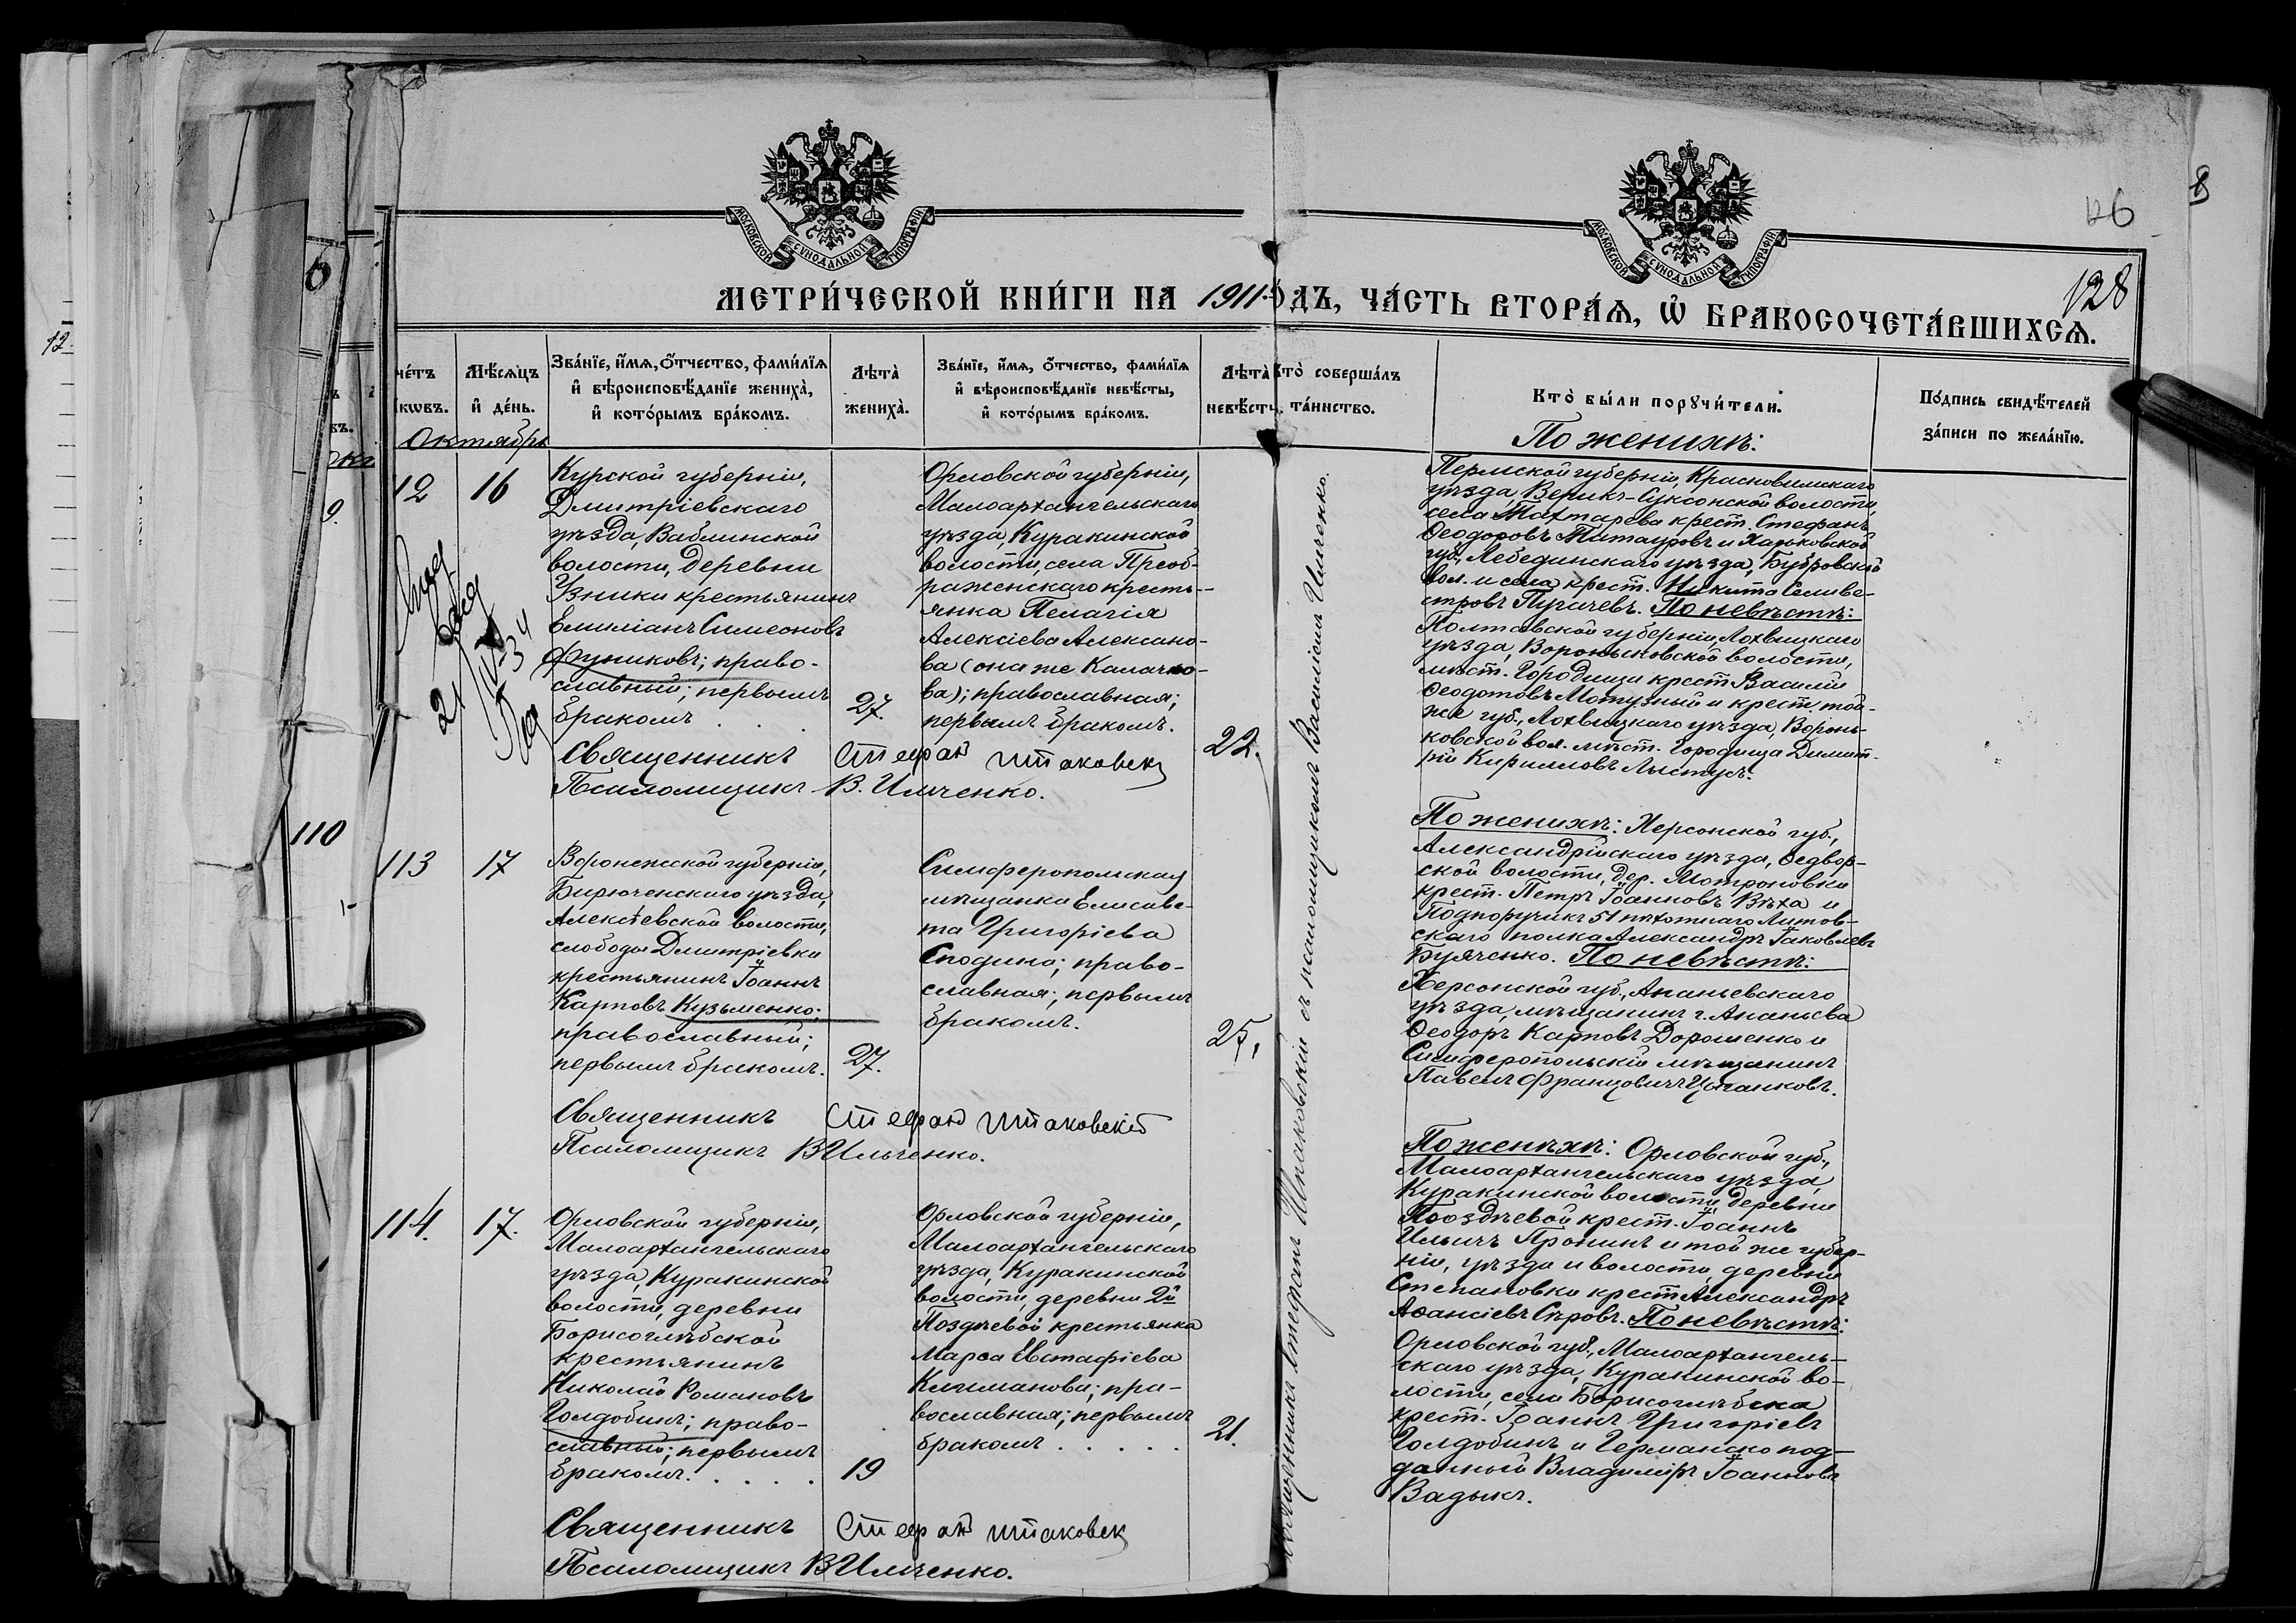 МОСКОВСКОЙ СѴНОДАЛЬНОЙ ТИПОГРАФІИ
МОСКОВСКОЙ СѴНОДАЛЬНОЙ ТИПОГРАФІИ
126
128
МЕТРИ́ЧЕСКОЙ КНИ́ГИ НА 1911 ГО́ДЪ, ЧА́СТЬ ВТОРА́Я, Ѽ БРАКОСОЧЕТА́ВШИХСЯ.
Мѣ́сяцъ и҆ де́нь.
Зва́нїе, и҆́мя, ѻ҆́тчество, фами́лїя
и҆ вѣроисповѣ́данїе жениха̀,
и҆ кото́рымъ бра́комъ.
Лѣта̀ жениха̀.
Зва́нїе, и҆́мя, ѻ҆́тчество, фами́лїя
и҆ вѣроисповѣ́данїе невѣ́сты,
и҆ кото́рымъ бра́комъ.
Лѣта̀ невѣ́сты.
Кто̀ соверша́лъ та́инство.
Кто̀ бы́ли порꙋчи́тели.
По́дпись свидѣ́телей
за́писи по жела́нїю.
Октябрь
12
16
Курской губерніи,
Дмитріевскаго
уѣзда, Ваблинской
волости, деревни
Узники крестьянинъ
Емиліанъ Симеоновъ
Фуниковъ; право-
славный; первымъ
бракомъ . . .
27.
Орловской губерніи,
Малоархангельскаго
уѣзда, Куракинской
волости, села Преоб-
раженскаго кресть-
янка Пелагія
Алексіева Алексано-
ва (она же Калачо-
ва); православная;
первымъ бракомъ.
22.
Священникъ Стефан Шпаковск
Псаломщикъ В. Ильченко.
По женихѣ:
Пермской губерніи, Красноуфимскаго
уѣзда, Верихъ-Суксонской волости,
села Тахтарева крест. Стефанъ
Ѳеодоровъ Титауровъ и Харьковской
губ., Лебединскаго уѣзда, Бобровской
вол. и села крест. Никита Селиве-
стровъ Пугачевъ. По невѣстѣ:
Полтавской губерніи Лохвицкаго
уѣзда, Вороньковской волости,
мѣст. Городища крест. Василій
Ѳеодотовъ Мотузный и крест. той-
же губ., Лохвицкаго уѣзда, Воронь-
ковской вол. мѣст. Городища Димит-
рій Кирилловъ
113
17
Воронежской губерніи,
Бирюченскаго уѣзда,
Алексѣевской волости,
слободы Дмитріевки
крестьянинъ Іоаннъ
Карповъ Кузьменко;
православный;
первымъ бракомъ.
27.
Симферопольская
мѣщанка Елисаве-
та Григоріева
Сподина; право-
славная; первымъ
бракомъ.
25.
Священникъ Стефан Шпаковскій
Псаломщикъ В Ильченко.
По женихѣ: Херсонской губ.,
Александрійскаго уѣзда, Ѳедвор-
ской волости, дер. Мотроновки
крест. Петръ Іоанновъ Вѣха и
Подпоручикъ 51 пѣхотнаго Литов-
скаго полка Александръ Іаковлевъ
Буяченко. По невѣстѣ:
Херсонской губ., Ананьевскаго
уѣзда, мѣщанинъ г. Ананьева
Ѳеодоръ Карповъ Дорошенко и
Симферопольскій мѣщанинъ
Павелъ Францовичъ Цыганковъ.
114.
17.
Орловской губерніи,
Малоархангельскаго
уѣзда, Куракинской
волости, деревни
Борисоглѣбской
крестьянинъ
Николай Романовъ
Голдобинъ; право-
славный; первымъ
бракомъ. . . . .
19
Орловской губерніи,
Малоархангельскаго
уѣзда, Куракинской
волости, деревни 2й
Поздѣевой крестьянка
Марѳа Евстафіева
Климанова; пра-
вославная; первымъ
бракомъ . . . . .
21.
Священникъ Стефан Шпаковск
Псаломщикъ В Ильченко.
По женихѣ: Орловской губ.,
Малоархангельскаго уѣзда,
Куракинской волости, деревни
Поздѣевой крест. Іоаннъ
Ильичъ Пронинъ и той же губер-
ніи, уѣзда и волости, деревни
Степановки крест. Александръ
Аѳанасіевъ Сѣровъ. По невѣстѣ:
Орловской губ., Малоархангель-
скаго уѣзда, Куракинской во-
лости, села Борисоглѣбска
крест. Іоаннъ Григоріевъ
Голдобинъ и Германско под-
данный Владиміръ Іоанновъ
Вадыкъ.
Священникъ Стефанъ Шпаковскій съ псаломщикомъ Василіемъ Ильченко.
110